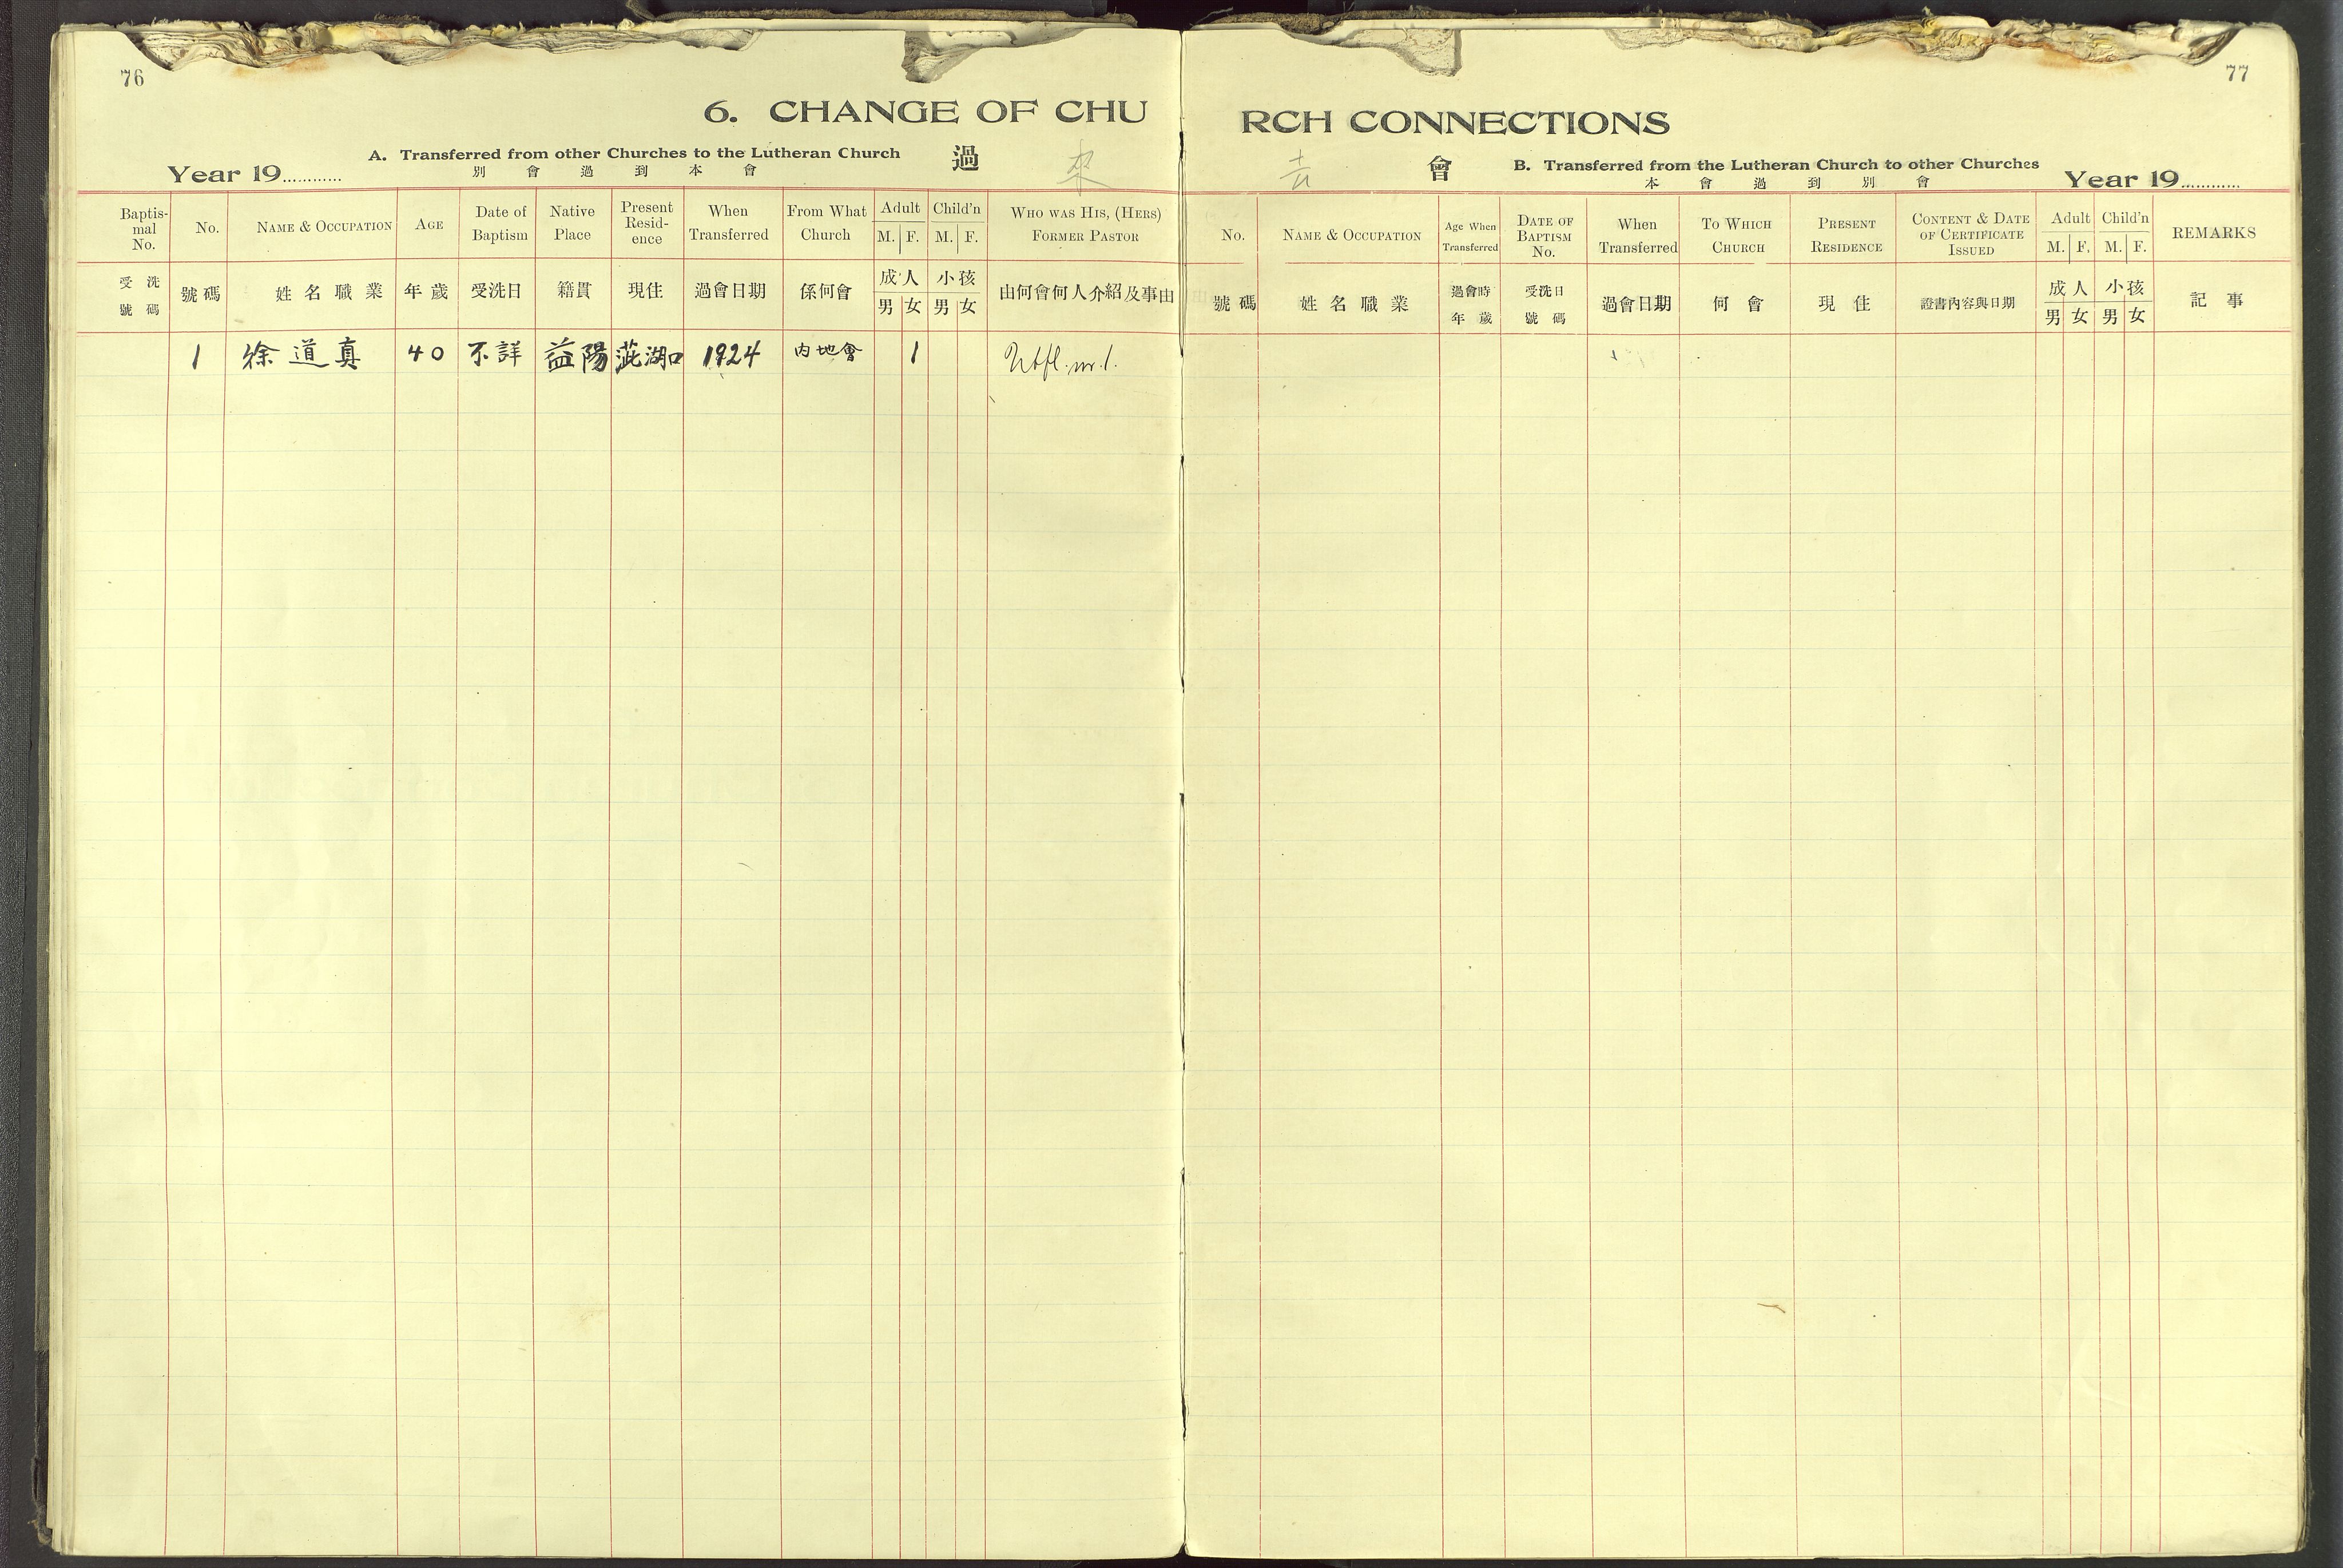 76
6. CHANGE OF CHU
A. Transferred from other Churches to the Lutheran Church 過 來
Year 19............ 別會過到本會
Baptismal No. No. NAME & OCCUPATION AGE Date of Baptism Native Place Present Residence When Transferred From What Church Adult M. F. Child'n M. F. WHO WAS HIS, (HERS) FORMER PASTOR
受洗號碼 號碼 姓名職業 年歲 受洗日 籍貫 現住 過會日期 係何會 成人 男 女 小孩 男 女 由何會何人介紹及事由
1 徐道真 40 不詳 益陽 茈湖口 1924 內地會 1
77
RCH CONNECTIONS
去 會 B. Transferred from the Lutheran Church to other Churches
本會過到別會 Year 19............
No. NAME & OCCUPATION Age When Transferred DATE OF BAPTISM No. When Transferred TO WHICH CHURCH PRESENT RESIDENCE CONTENT & DATE OF CERTIFICATE ISSUED Adult M. F. Child'n M. F. REMARKS
號碼 姓名職業 過會時年歲 受洗日號碼 過會日期 何會 現住 證書內容與日期 成人 男 女 小孩 男 女 記事